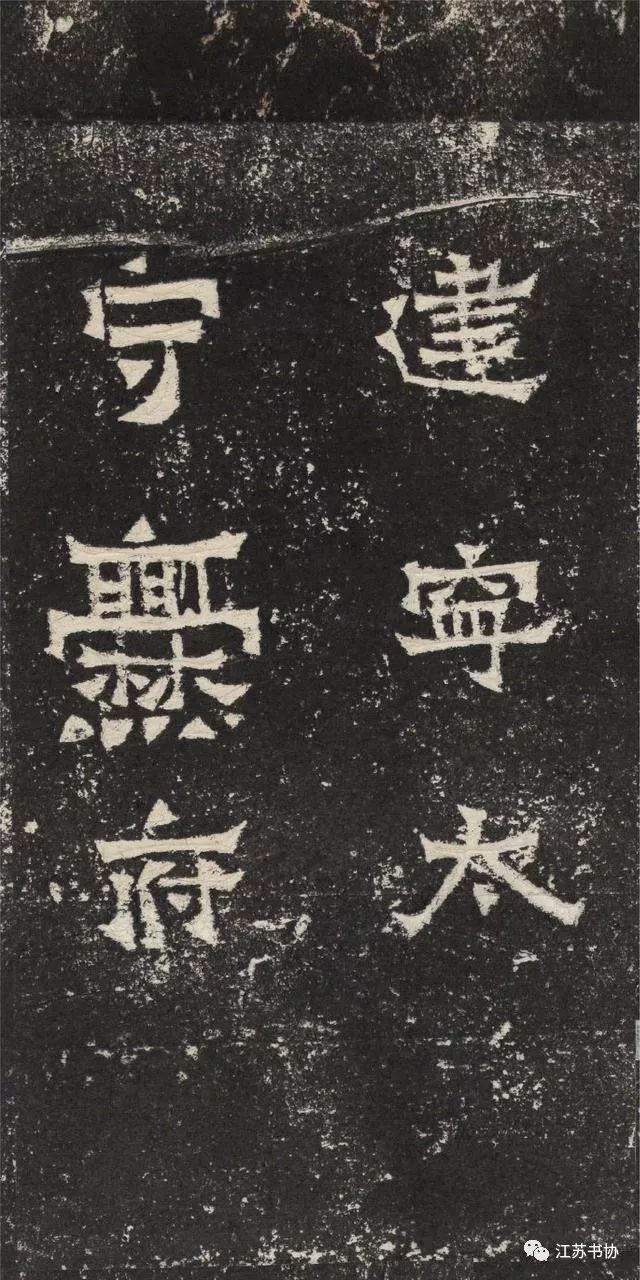 建寧太
守爨府
江苏书协